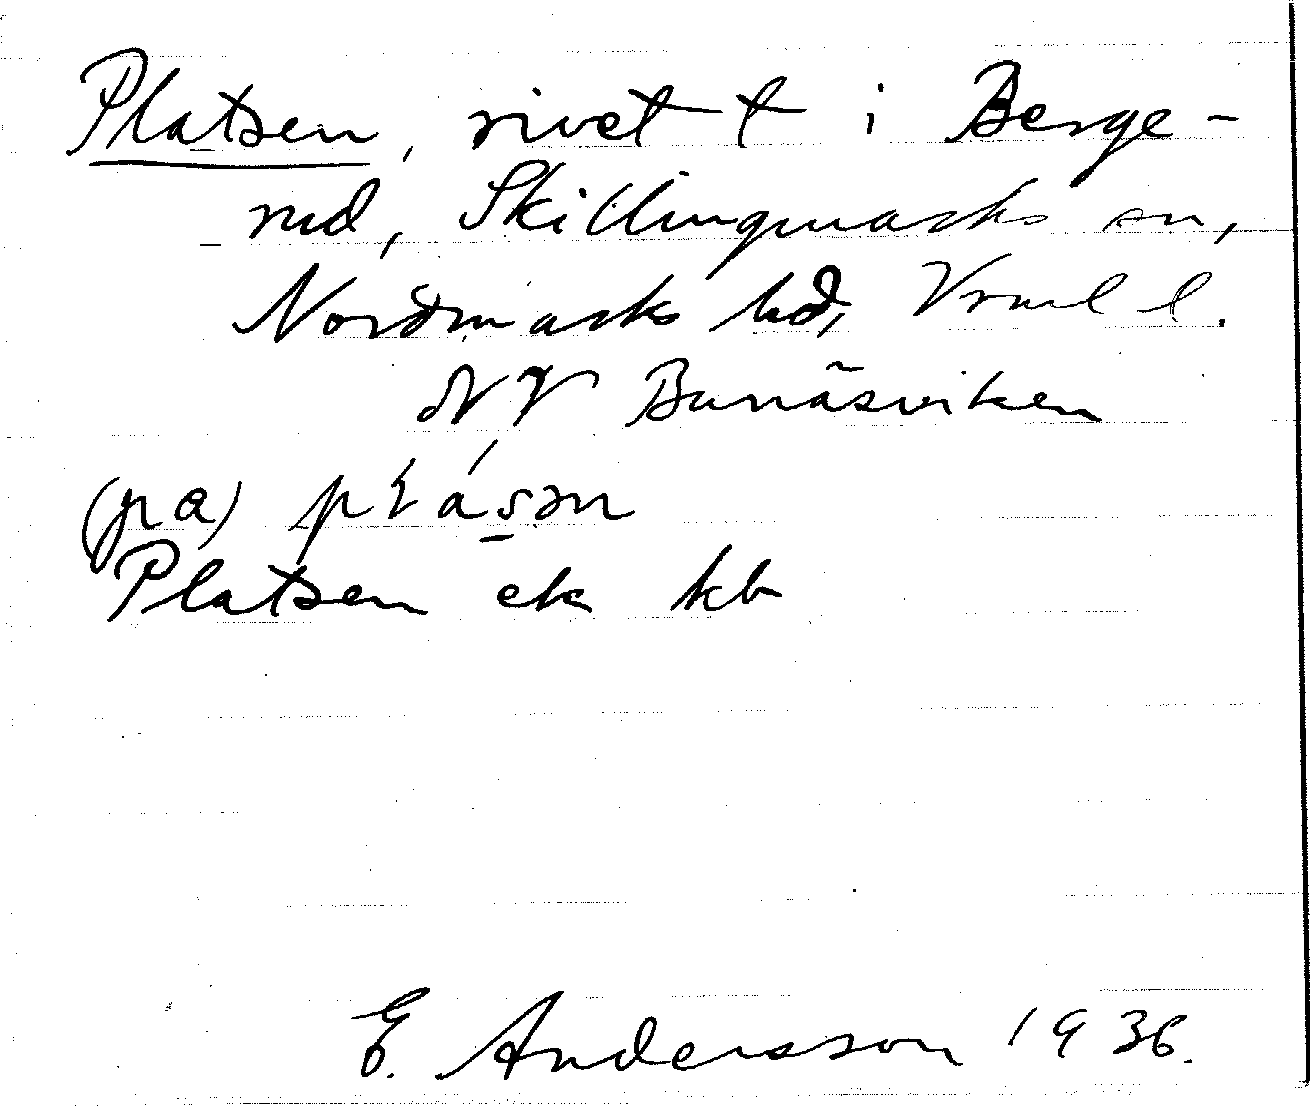 Platsen, rivet t i Berge-
rud, Skillingmarks sn,
Nordmarks hd, Vrml l.
NV Bunäsviken
(pa) plásən
Platsen ek kb
E. Andersson 1936.